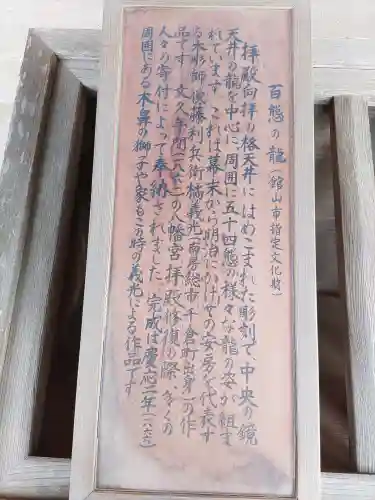 百態の龍（館山市指定文化財）
拝殿向拝の格天井にはめこまれた彫刻で、中央の鏡
天井の龍を中心に周囲に五十四態の様々な龍の姿が組ま
れています。これは幕末から明治にかけての安房を代表す
る木彫師後藤利兵衛橘義光（南房総市千倉町出身）の作
品です。文久年間（一八六二）の八幡宮拝殿修復の際、多くの
人々の寄付によって奉納されました。完成は慶応二年（一八六六）
周囲にある木鼻の獅子や象もこの時の義光による作品です